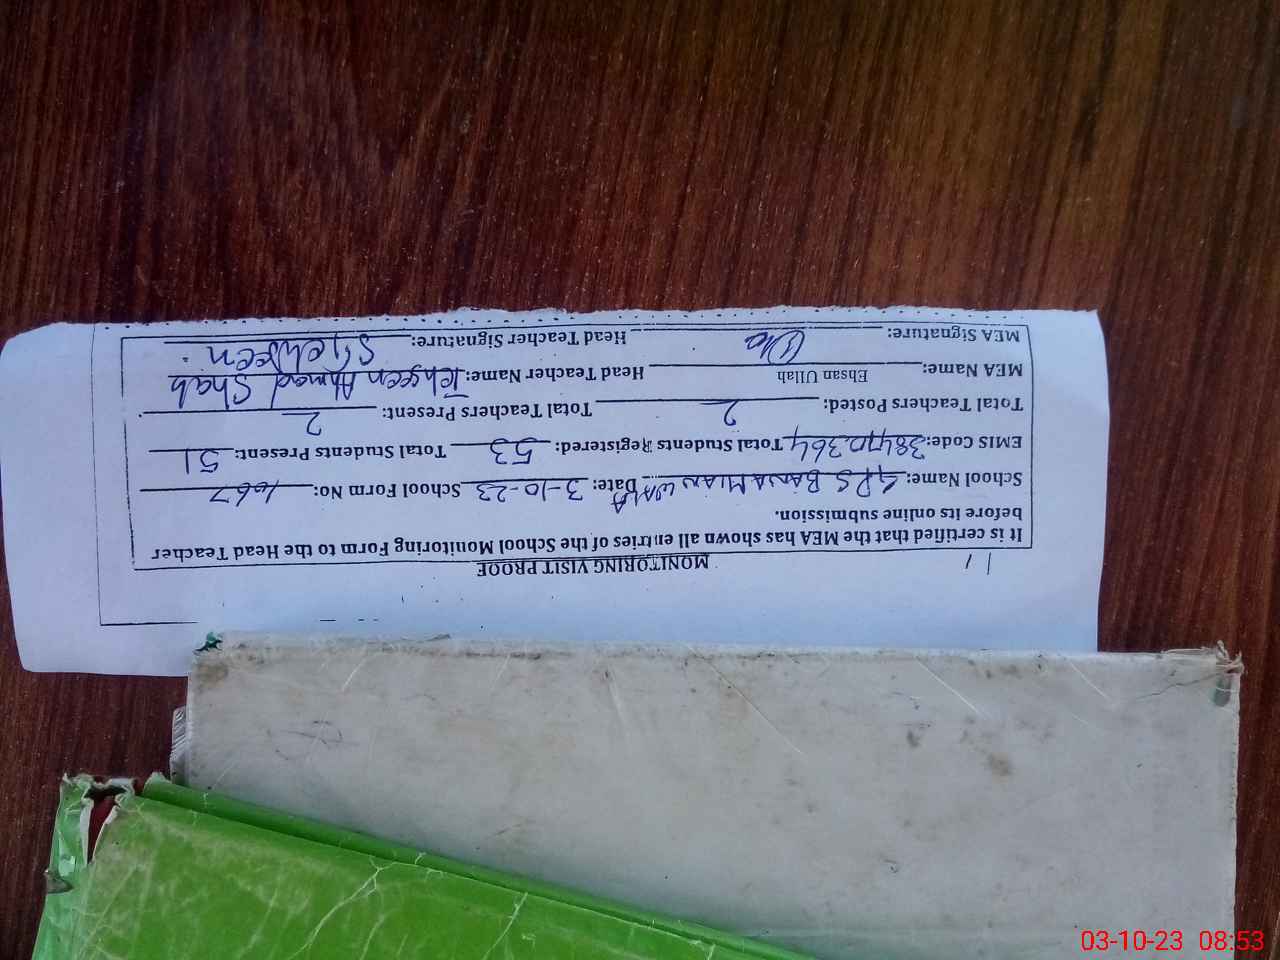 MONITORING VISIT PROOF
It is certified that the MEA has shown all entries of the School Monitoring Form to the Head Teacher
before its online submission.
School Name: GPS BANA MIAN WALA Date: 3-10-23 School Form No: 1667
EMIS Code: Total Students Registered: 53 Total Students Present: 51
Total Teachers Posted: 2 Total Teachers Present: 2
MEA Name: Ehsan Ullah Head Teacher Name: Tehseen Ahmad Shah
MEA Signature: Head Teacher Signature:
03-10-23 08:53